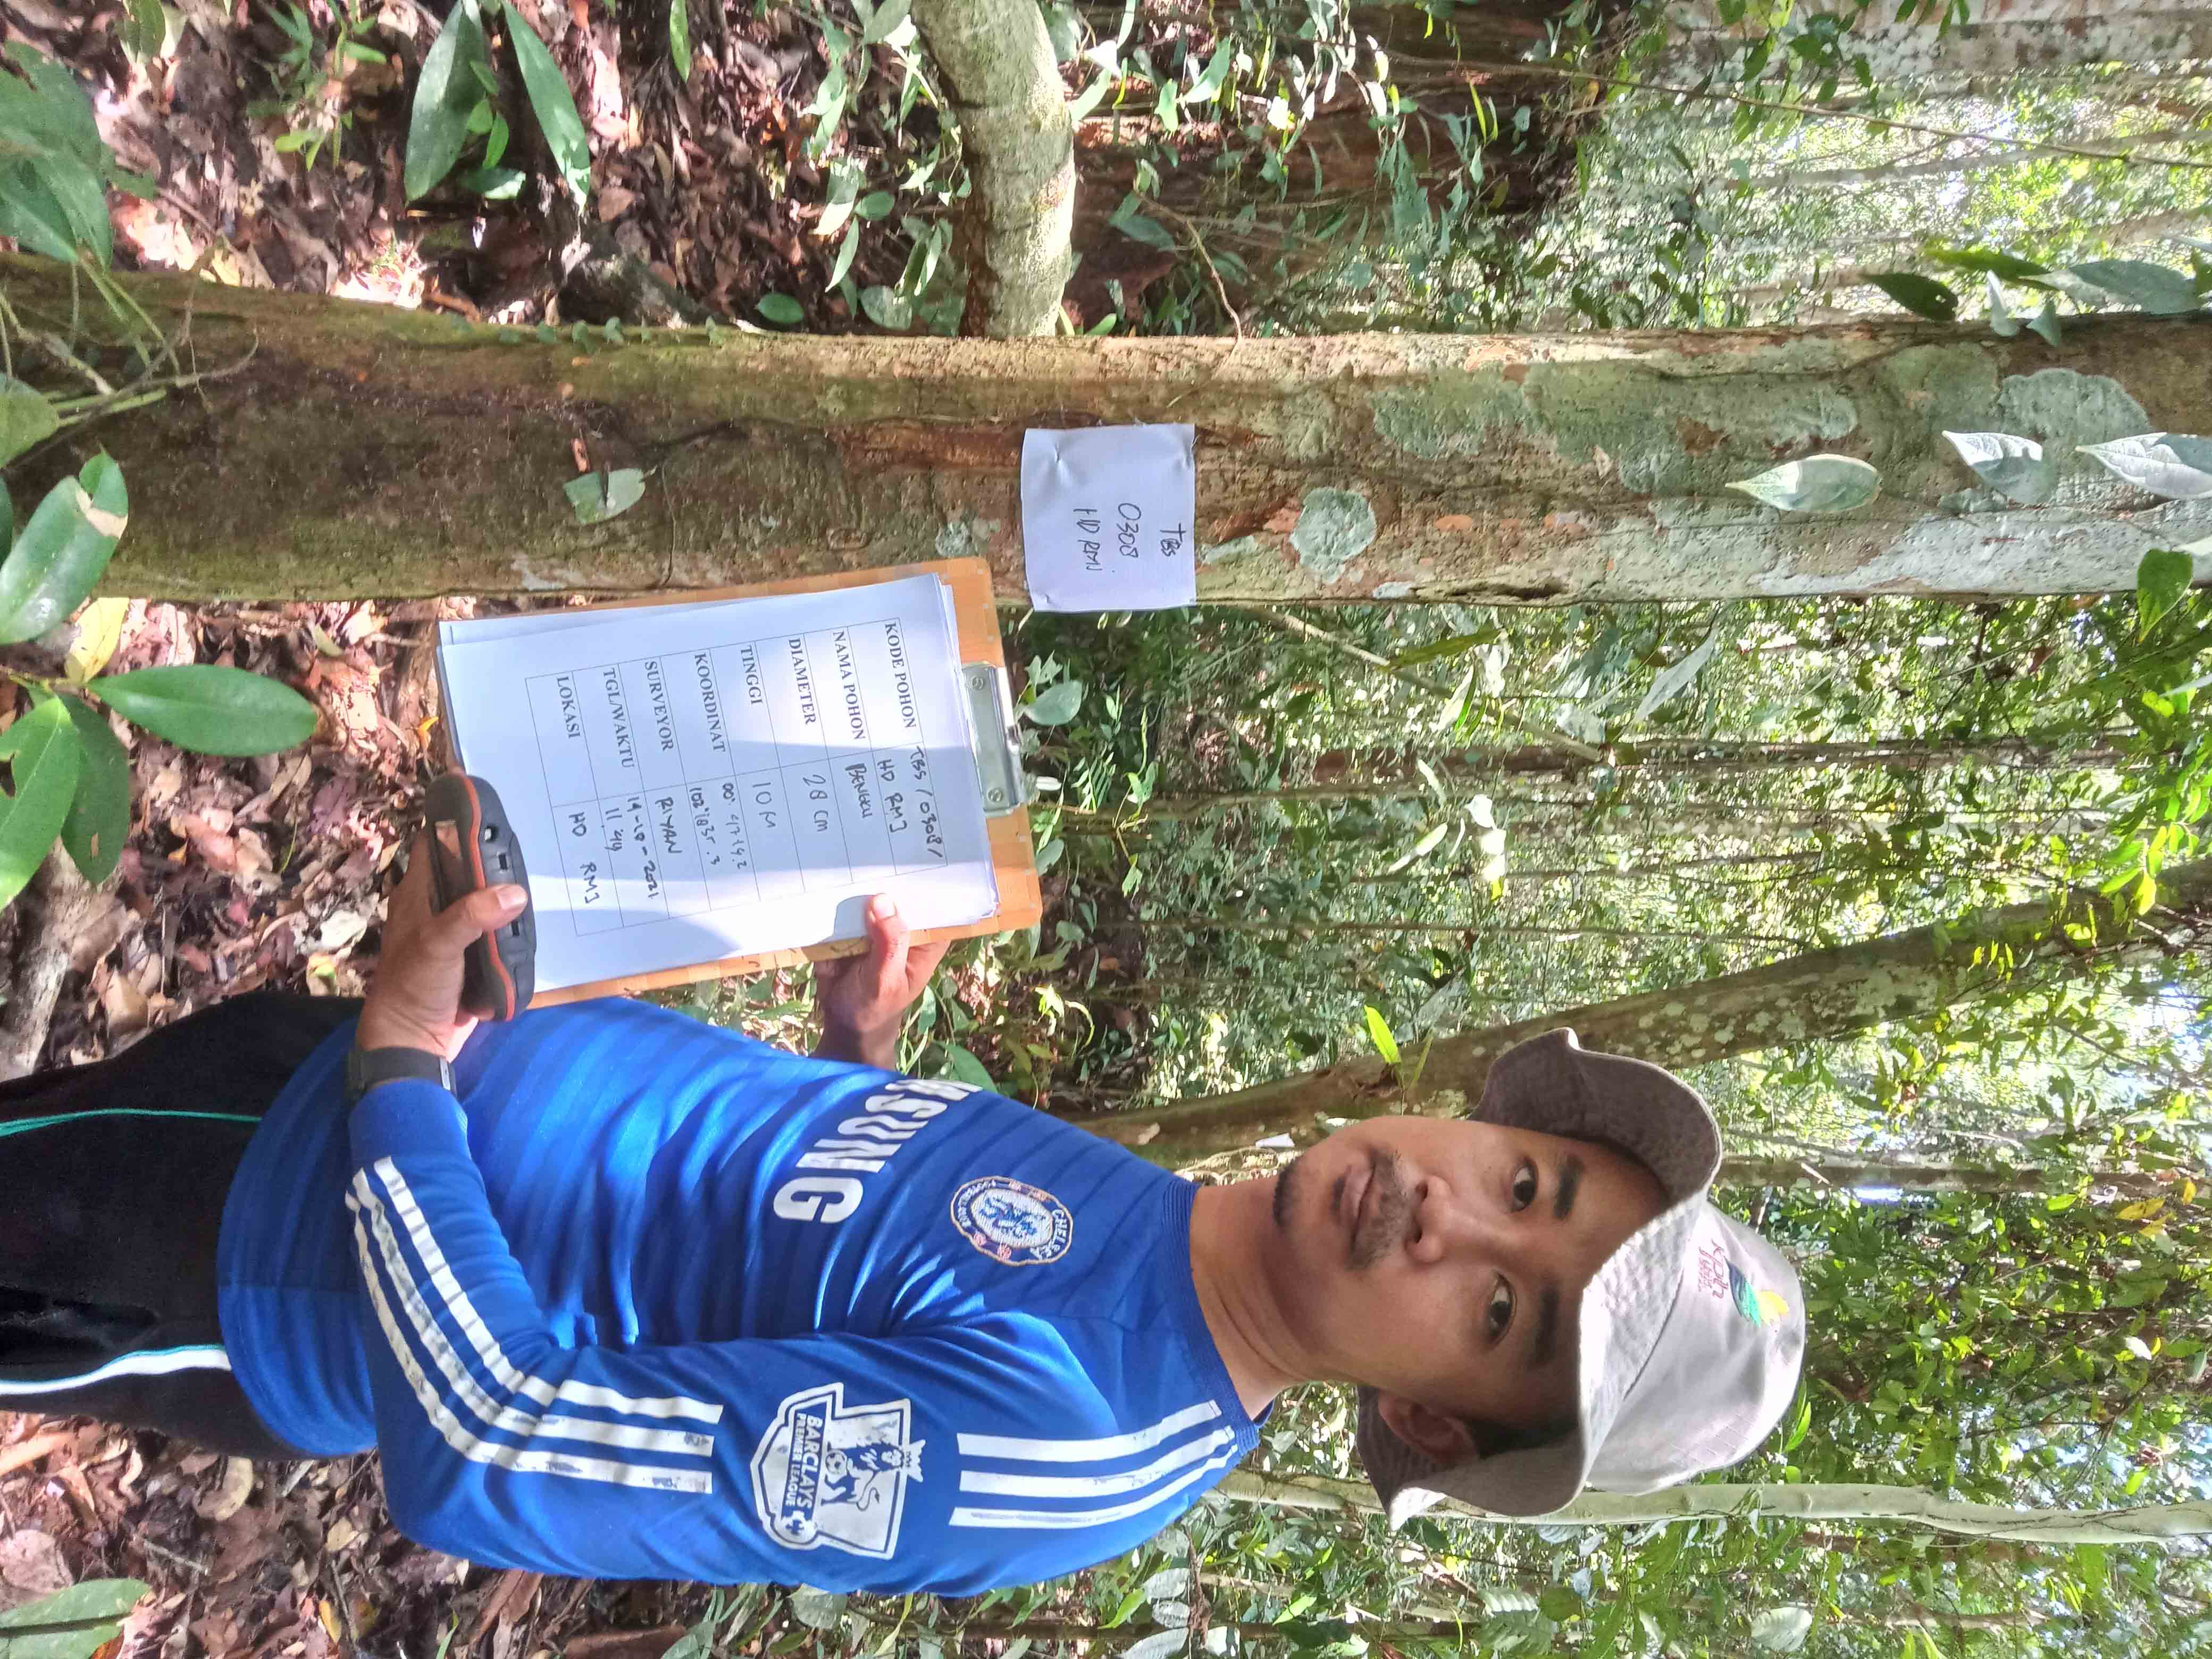 kph
TBS
0308
HD RMJ
KODE POHON TBS / 0308 /
HD RMJ
NAMA POHON BENGKU
DIAMETER 28 CM
TINGGI 10 M
KOORDINAT 00° 47 14.2
102° 18 35.3
SURVEYOR RIYAN
TGL/WAKTU 14-10-2021
11 44
LOKASI HD RMJ
CHELSEA
FOOTBALL CLUB
MSUNG
BARCLAYS
PREMIER LEAGUE